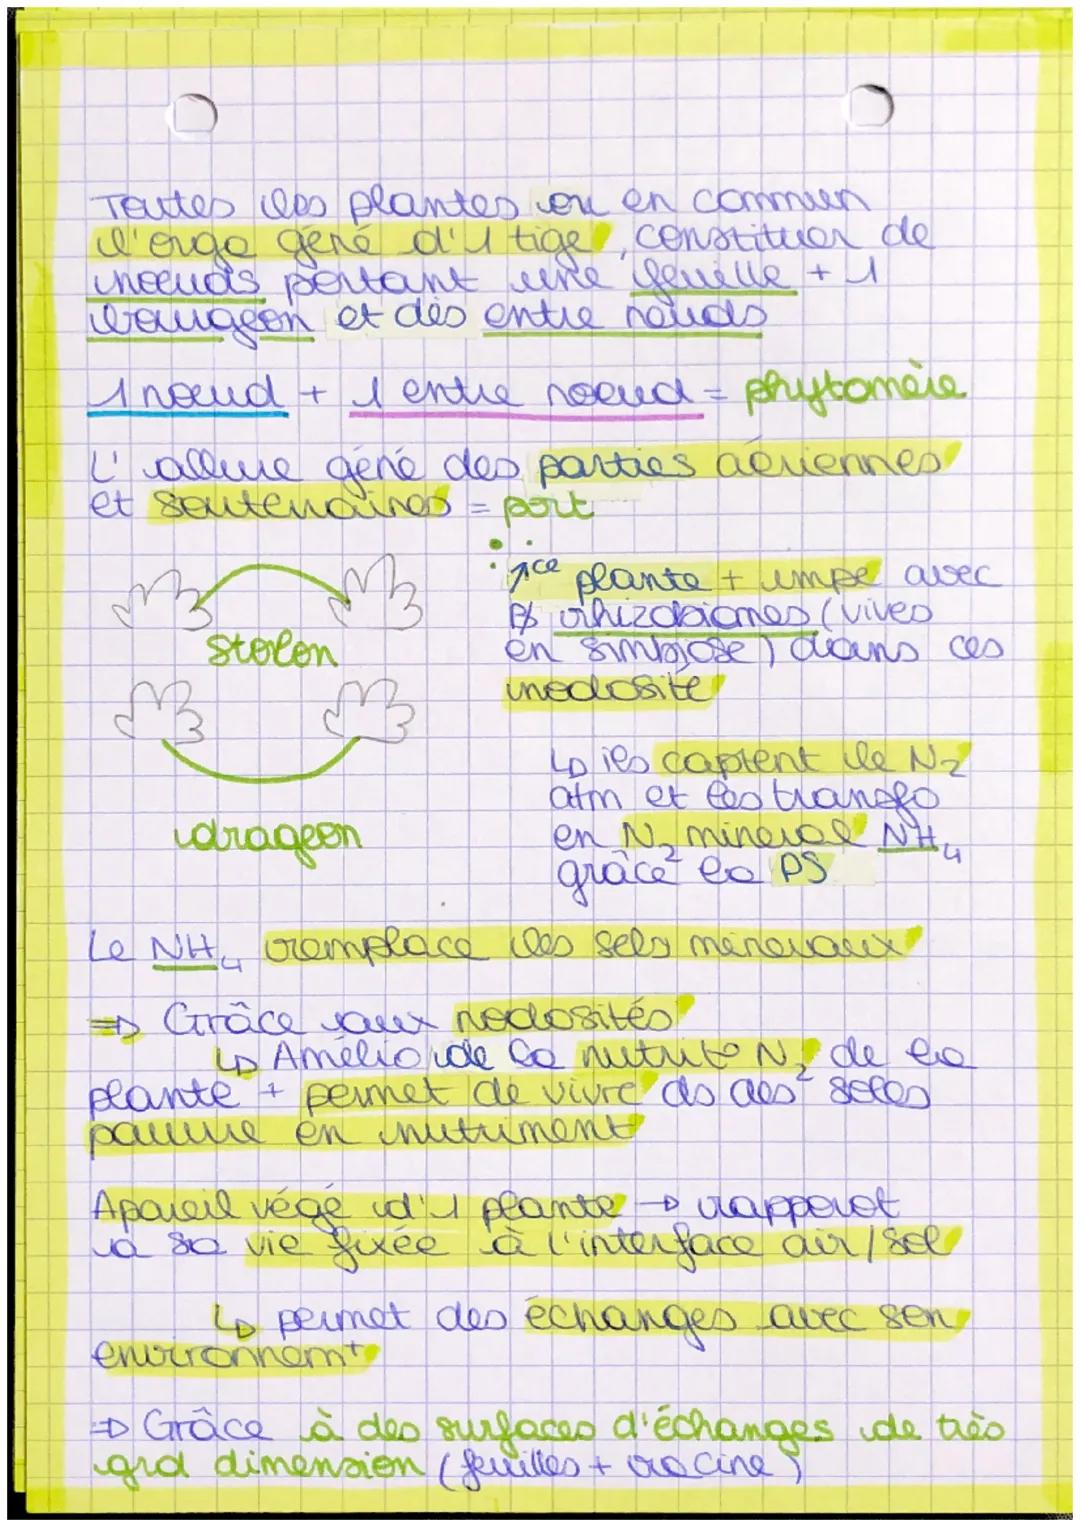 Toutes les plantes on en commun
l'orga géné d'1 tige, constituer de
noeuds portant une feuille + 1
bourgeon et des entre nœuds
1 noeud + 1 entre noeud = phytomère
L' allure géné des parties aériennes
et souterraines = port
Stolon
drageon
↗ce plante + impe avec
rhizobiomes (vives
en simbiose) dans ces
nodosité
↳ ils captent le N2
atm et les transfo
en N2 minéral NH4
grâce la PS
Le NH4 remplace les sels minéraux
⇒ Grâce aux nodosités
↳ Amélio de la nutrit° N2 de la
plante + permet de vivre ds des soles
pauvre en nutriment
Apareil végé d'1 plante → rapporot
à sa vie fixée à l'interface air/sol
↳ permet des échanges avec son
environnemt
⇒ Grâce à des surfaces d'échanges de très
grd dimension (feuilles + racine)